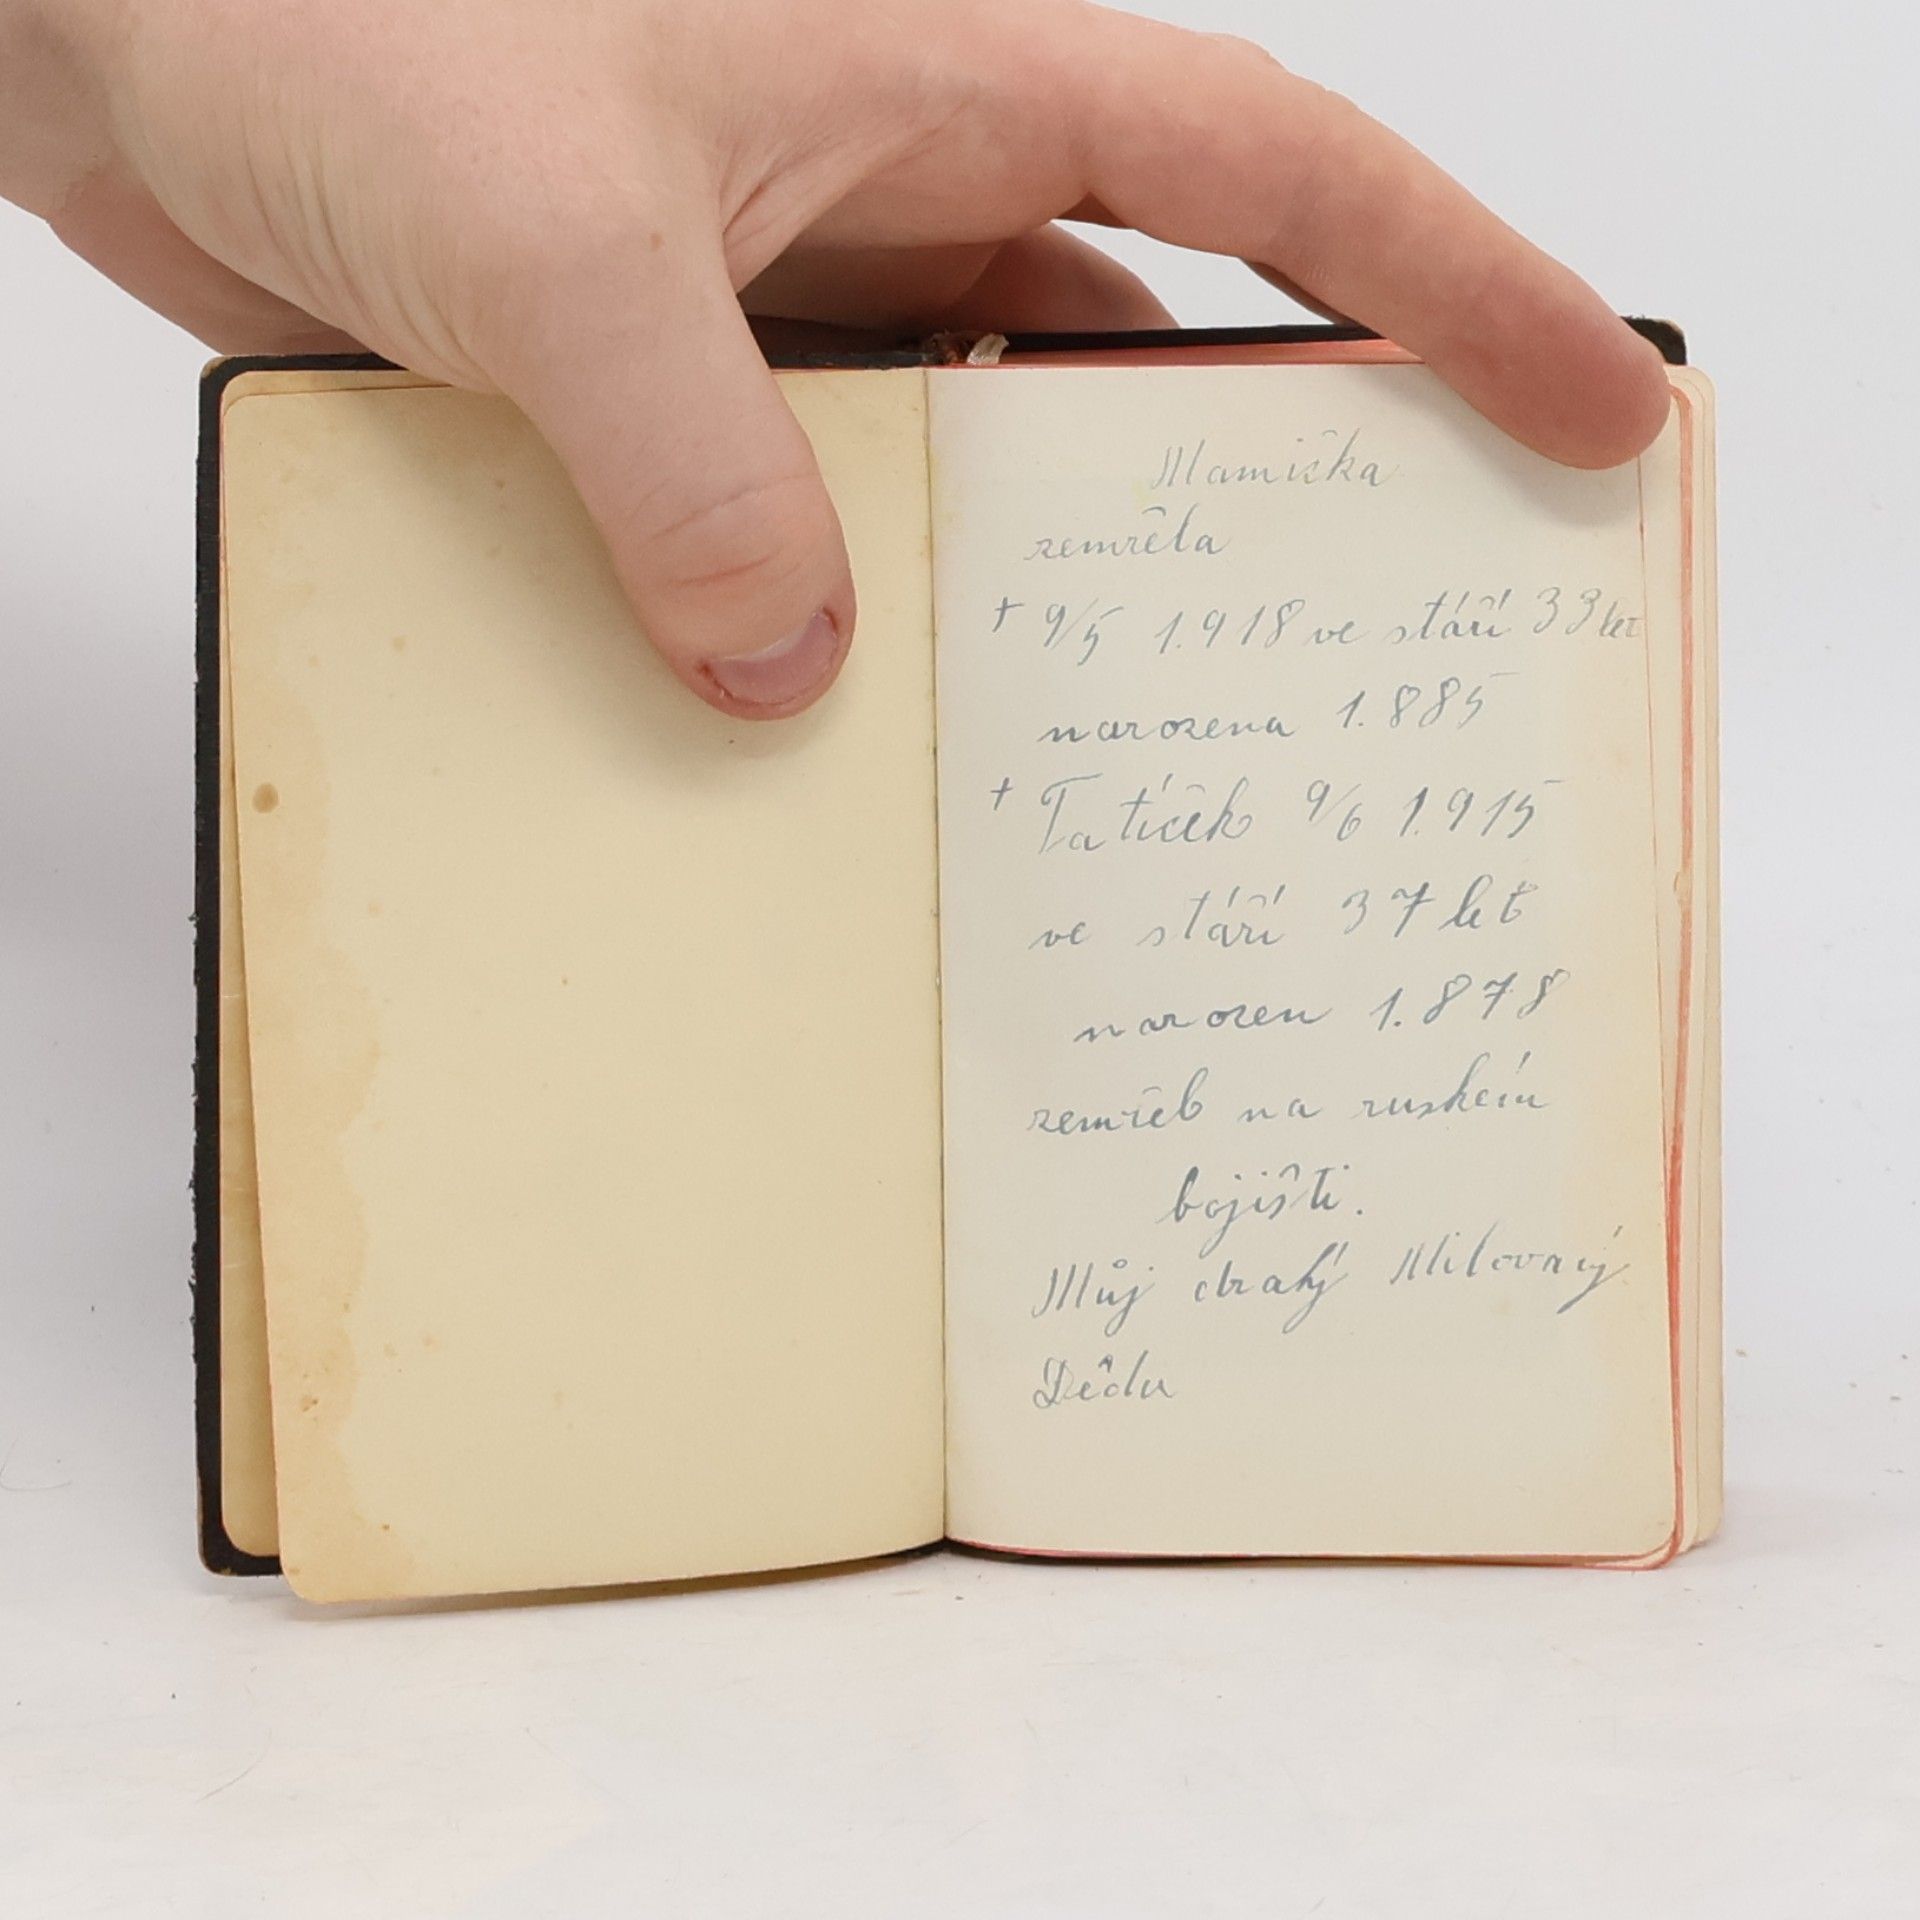 Mamička
zemřela
+ 9/5 1.918 ve stáří 33 let
narozena 1.885
+ Tatíček 9/6 1.915
ve stáří 37 let
narozen 1.878
zemřel na ruském
bojišti.
Můj drahý Milovaný
Dědu